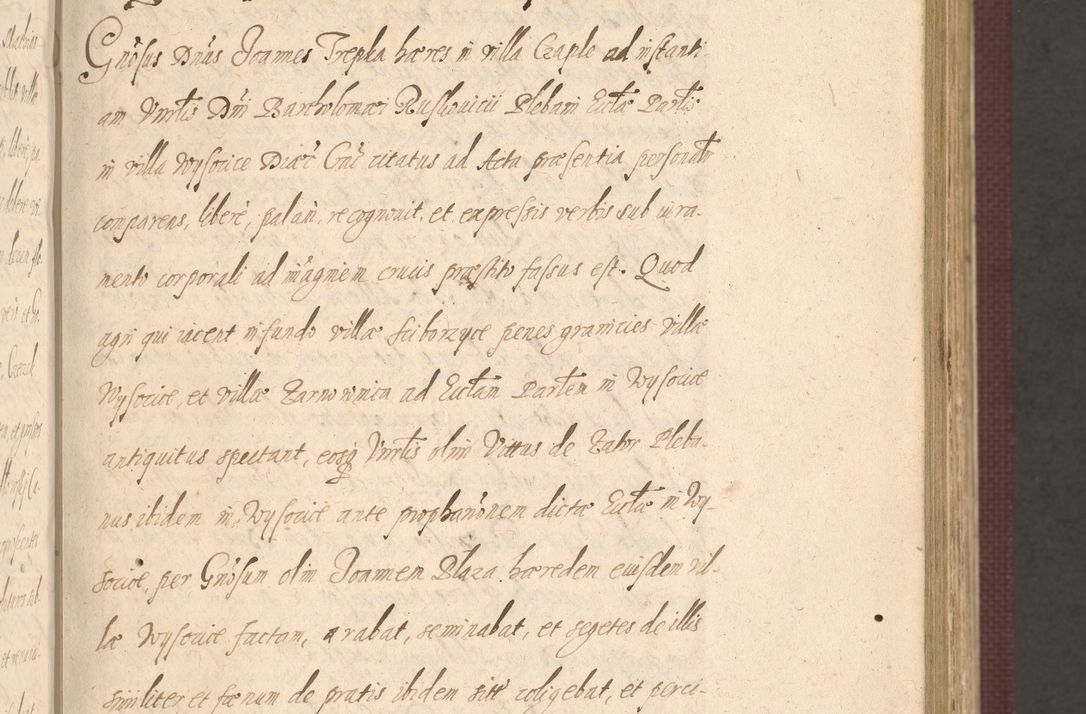 Gnõsus Dnũs Joannes Trepka hæres in villa Czaple ad instanti-
am Vnrtis Dni Bartholomæi Ruslovicii Plebani Ecclæ Partis
in villa Wysocice Diæc Crac citatus ad Acta præsentia personalr
comparens, liberè, palàm, recognovit, et expressis verbis sub iura-
mento corporali ad imaginem crucis præstito fassus est. Quod
agri qui iacent in fundo villæ Sciborzyce penes granicies villæ
Wysocice, et villæ Tarnowmica ad Ecclam Parlem in Wysocice
antiquitus spectant, eosq Vnrtis olim Vittus de Zabor Pleba-
nus ibidem in Wysocice ante prophanõnem dictæ Ecclæ in Wy-
socice, per Gnõsum olim Joannem Plaza hæredem eiusdem vil-
læ Wysocice factam, arabat, seminabat, et segetes de illis
similiter et fœnum de pratis ibidem sitis coligebat, et perci-